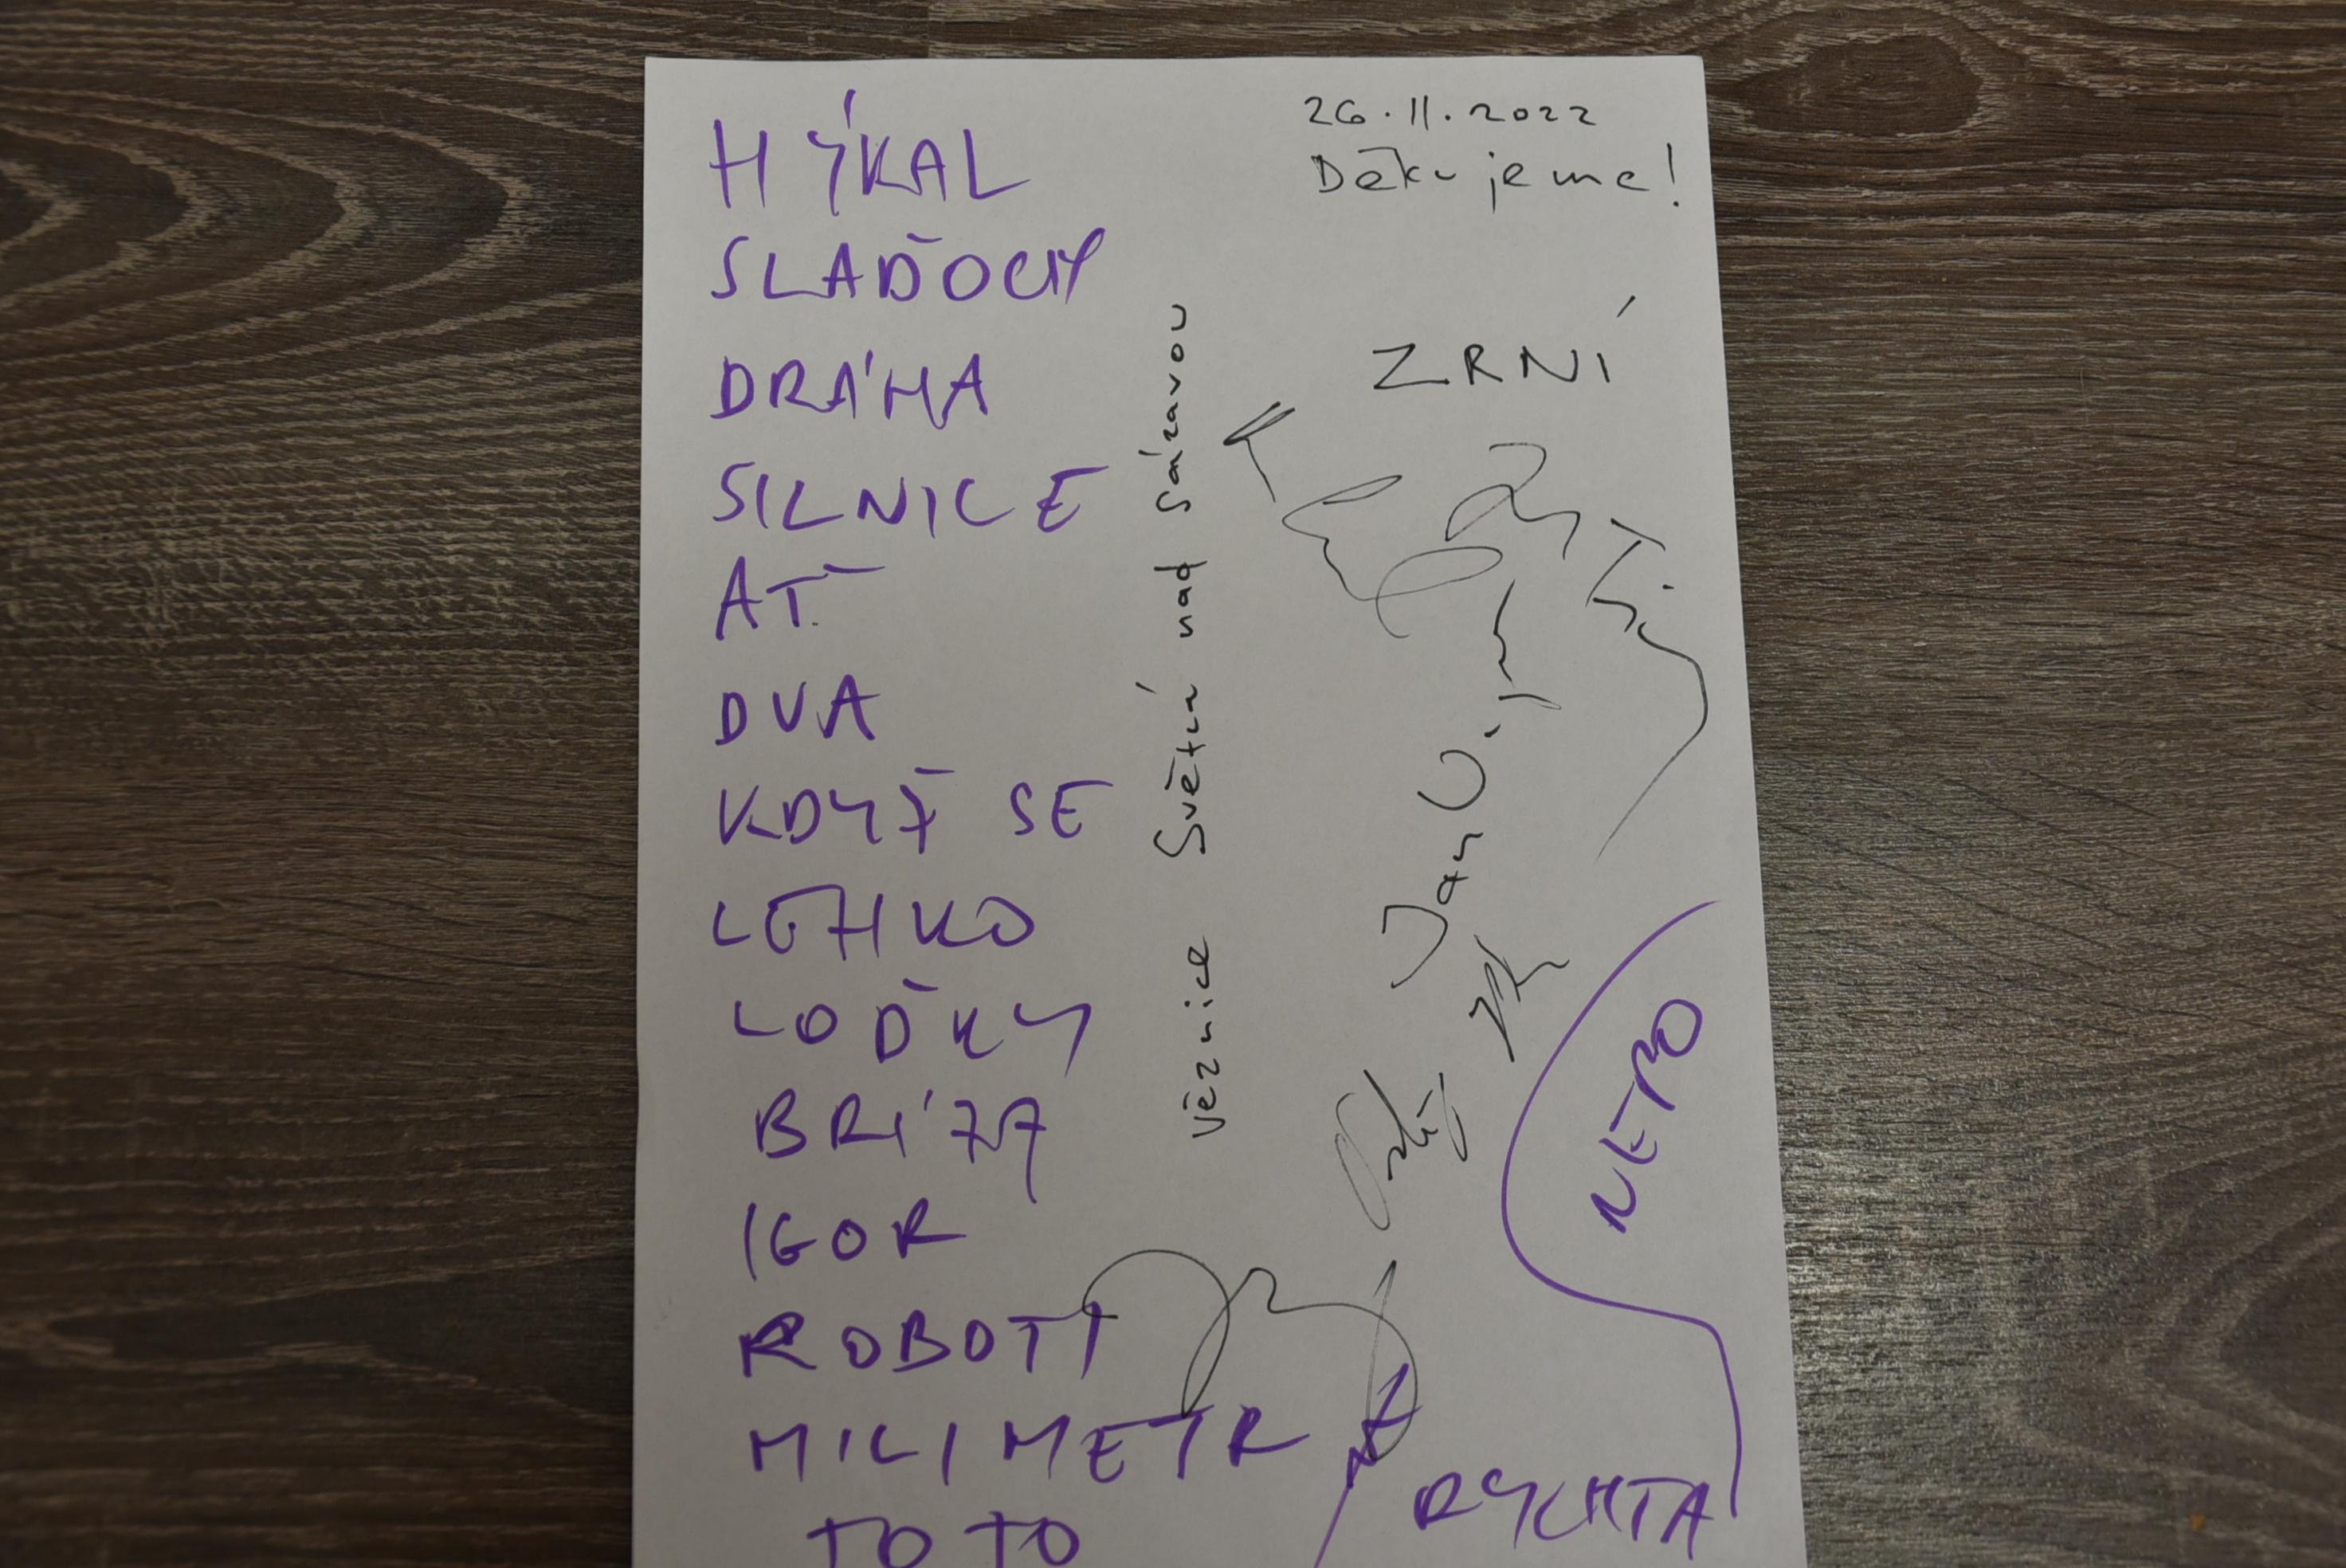 HÝKAL
SLAĎOCHY
DRÁMA
SILNICE
AŤ
DVA
KDYŽ SE
LEHKO
LOĎKY
BRÍZA
IGOR
ROBOTI
MILIMETR
TO TO
Věznice Světlá nad Sázavou
26.11.2022
Děkujeme!
ZRNÍ
Jan
NEBO
RYCHTA